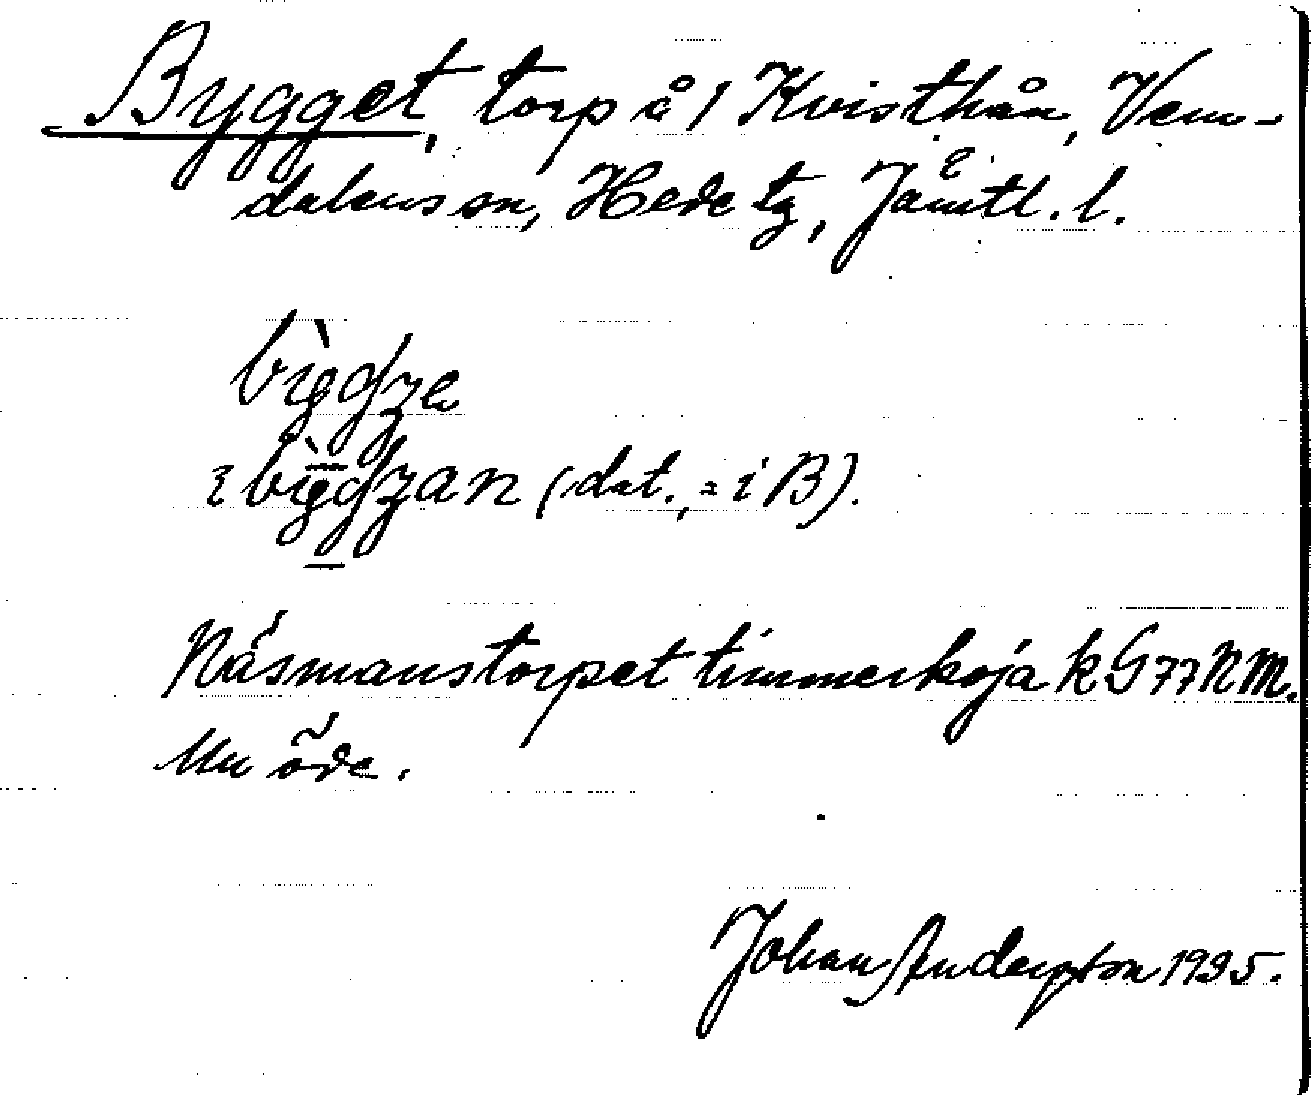 Bygget, torp å 1 Kvisthån, Vem-
dalens sn, Hede tg, Jämtl. l.
(dat., = i B).
Näsmanstorpet timmerkoja k G 77 N M.
Nu öde.
Johan Anderson 1935.